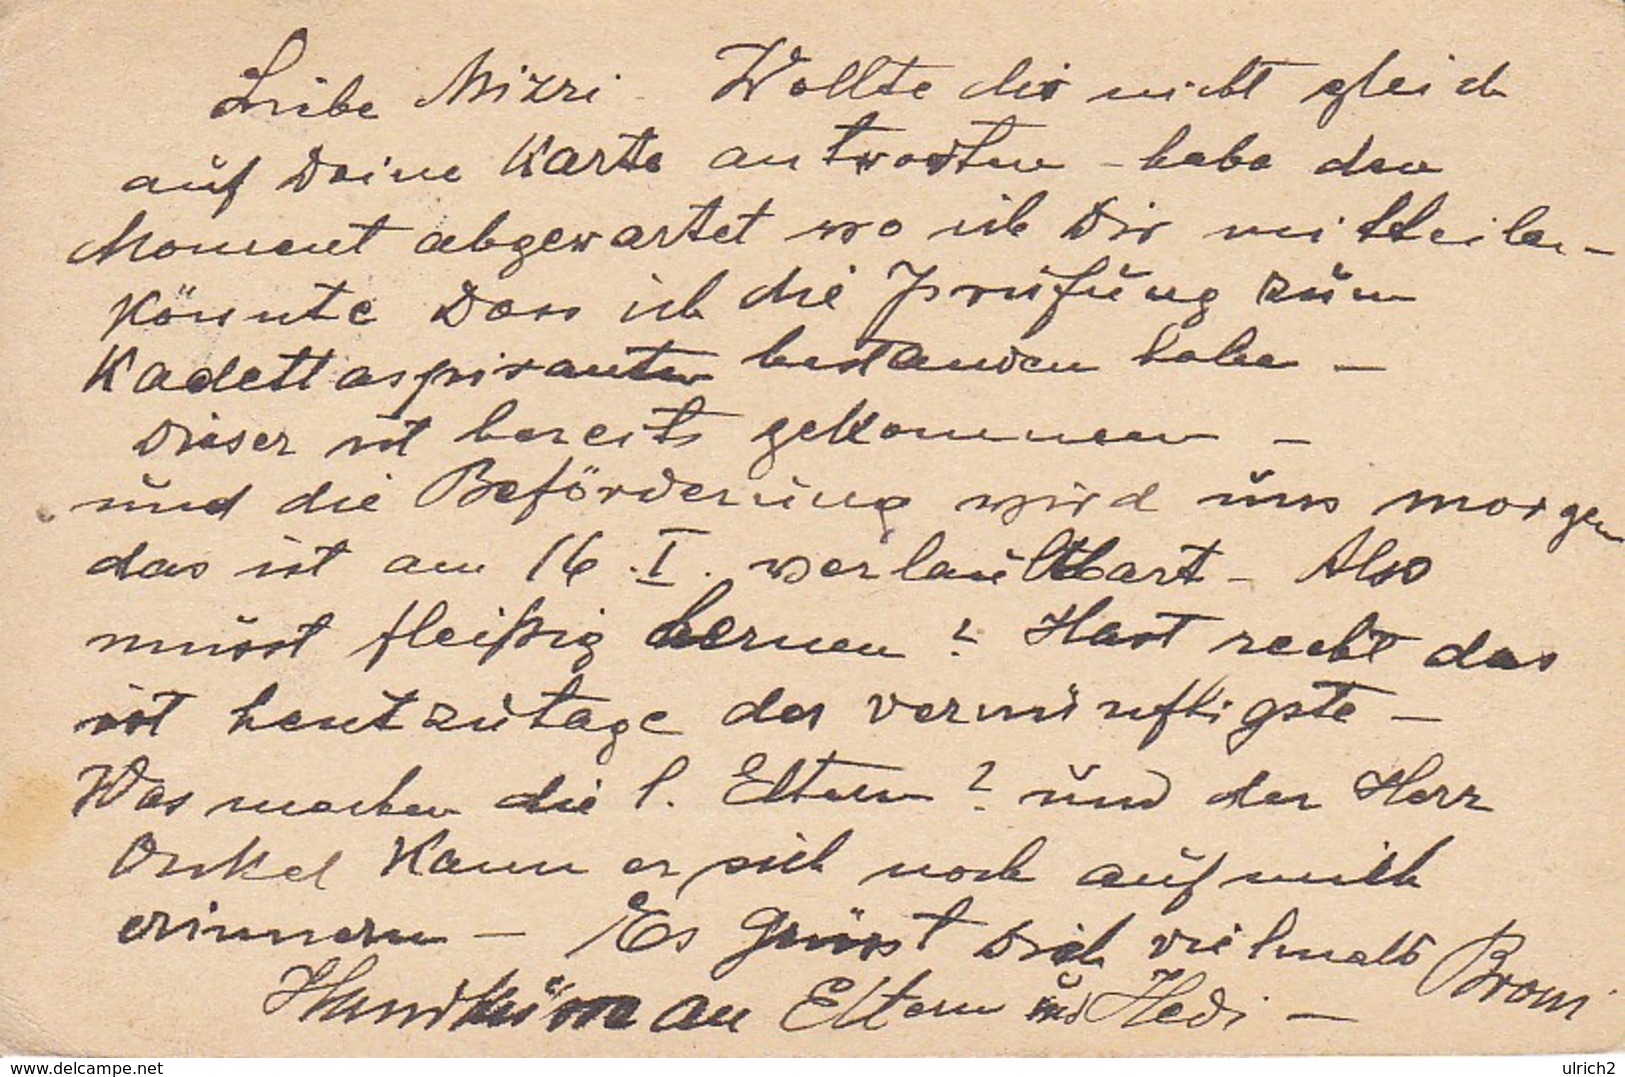 Liebe Mizzi. Wollte dir nicht gleich
auf Deine Karte antworten – habe den
Moment abgewartet wo ich Dir mittheilen –
könnte Dass ich die Prüfung zum
Kadettaspiranten bestanden habe –
Dieser ist bereits gekommen –
und die Beförderung wird uns morgen
das ist am 16. I. verlautbart – Also
müsst fleißig lernen? Hast recht das
ist heutzutage das vernünftigste –
Was machen die l. Eltern? und der Herr
Onkel kann er sich noch auf mich
erinnern – Es grüsst Dich vielmals Broni
Handküsse an Eltern und Hedi –
www.delcampe.net
ulrich2